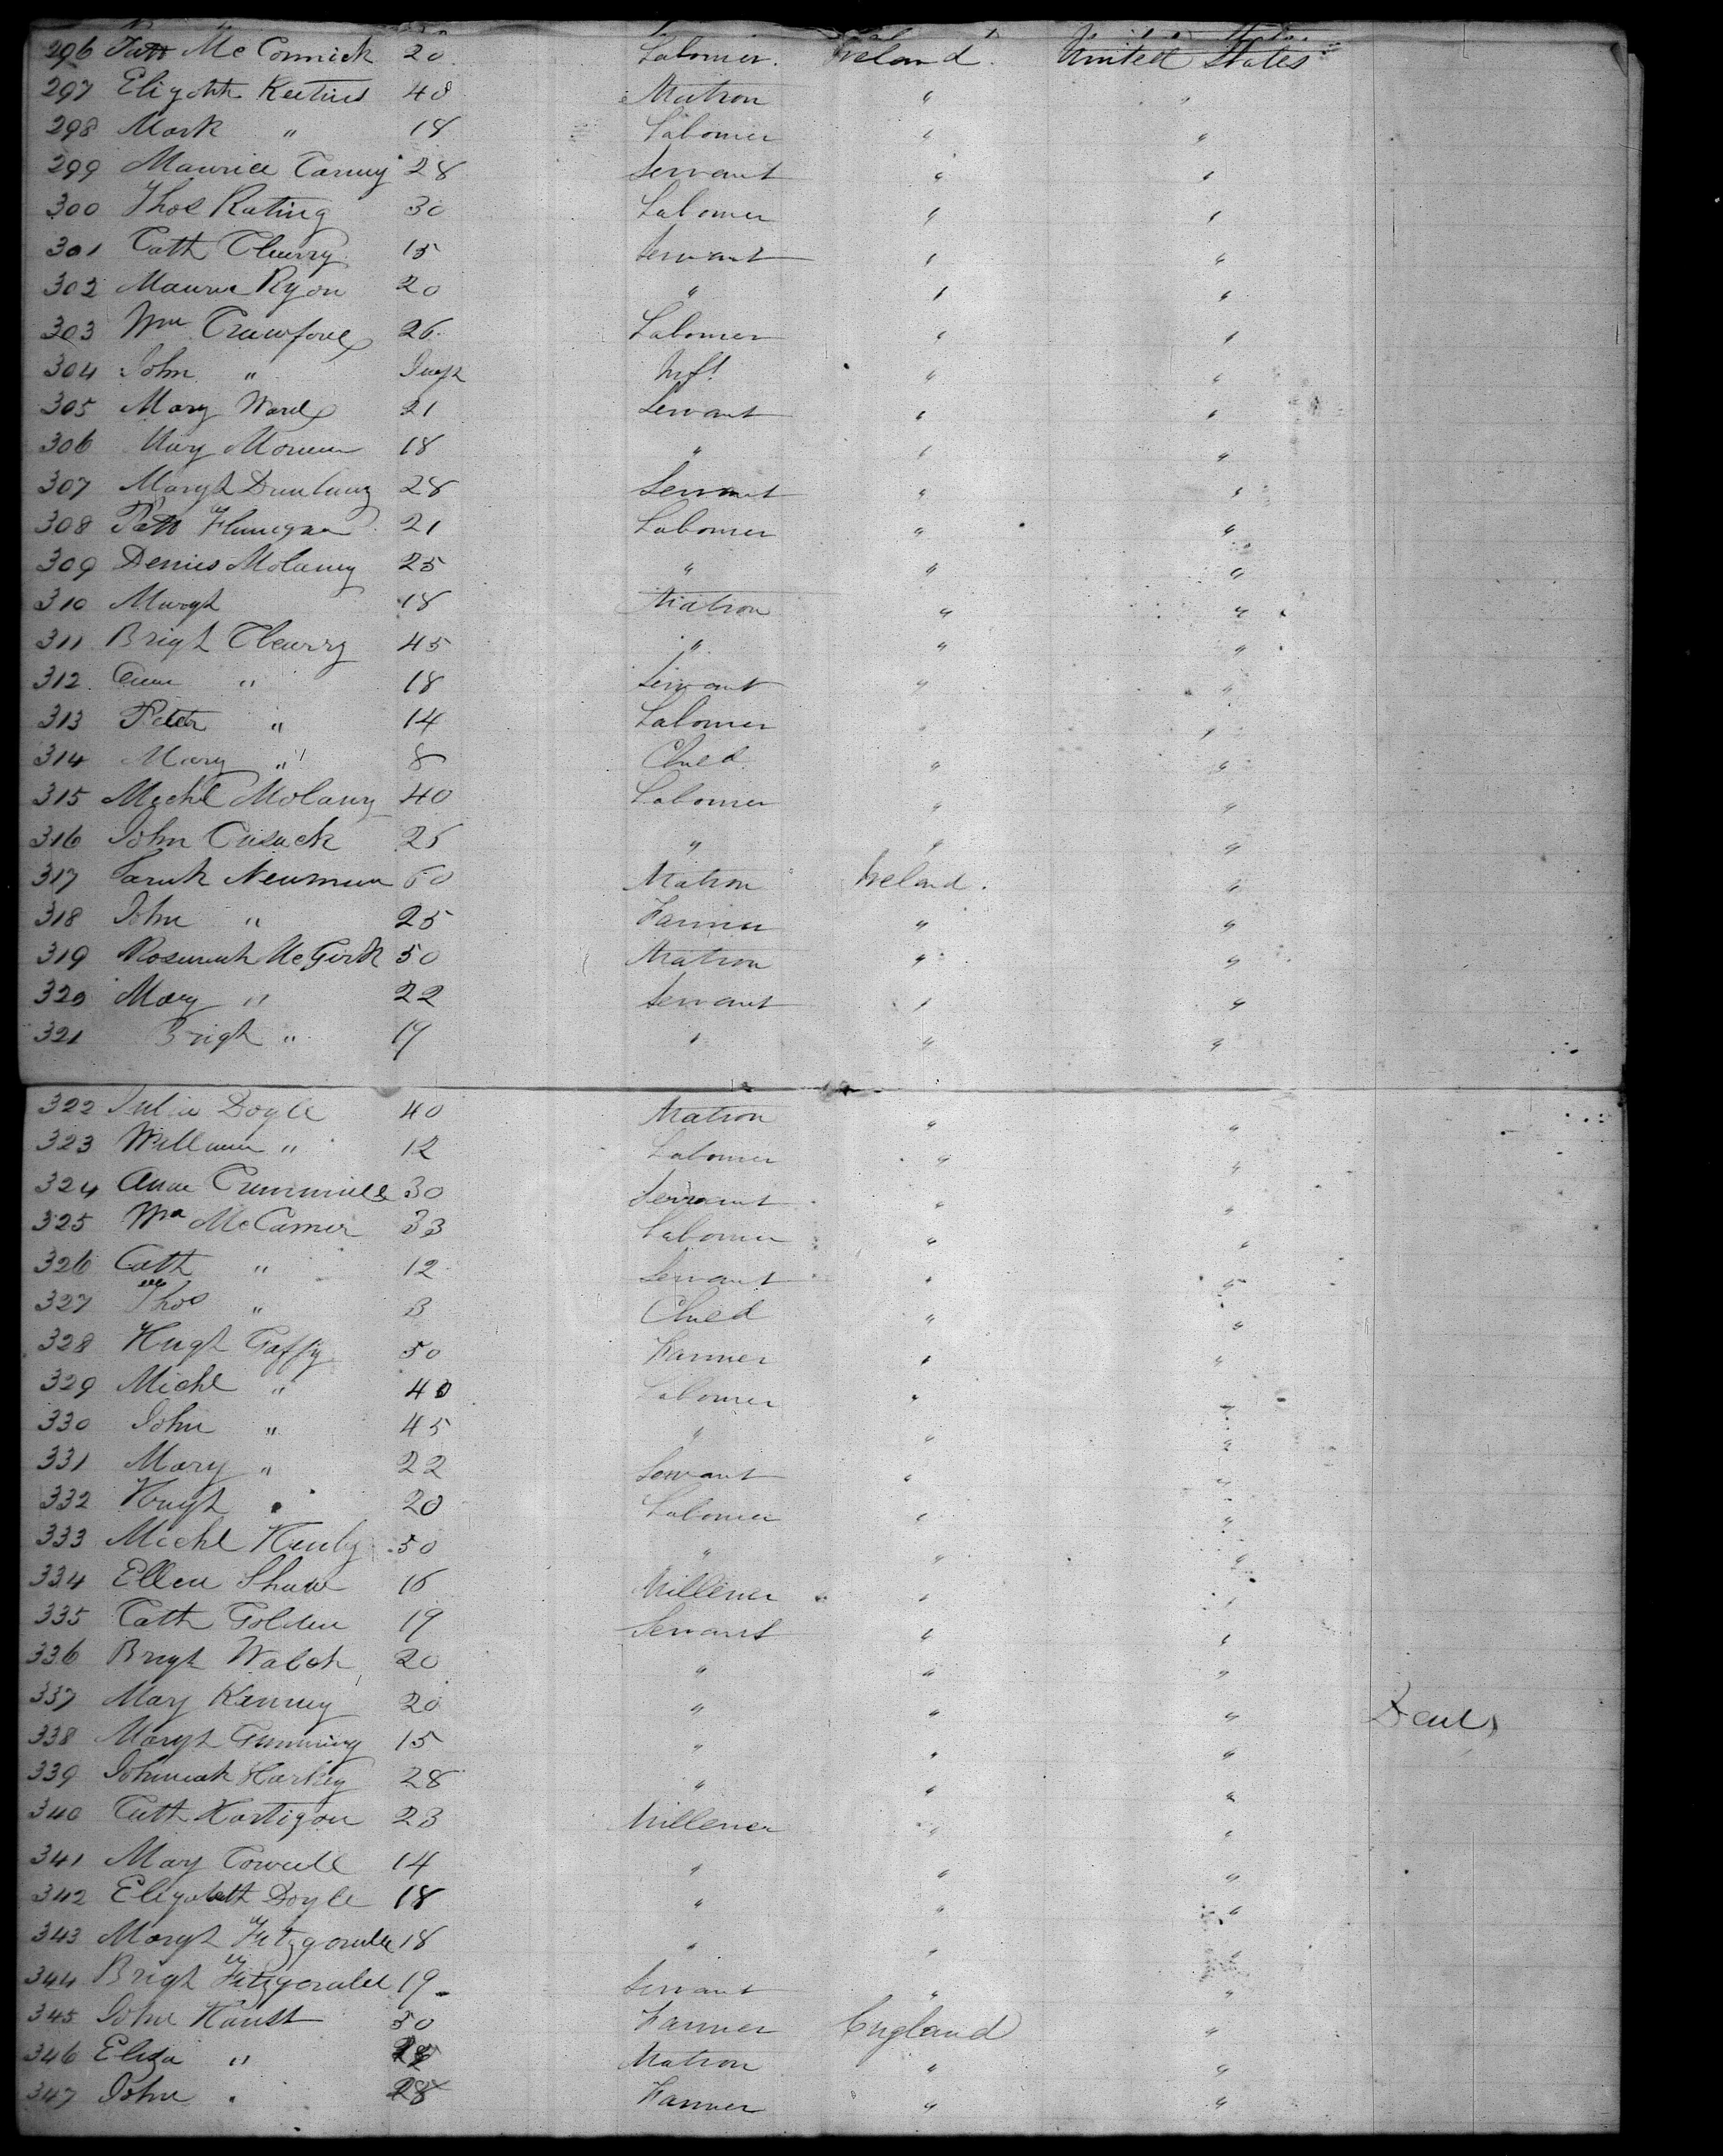 296 Patt McCormick 20 Labourer. Ireland. United States
297 Elizabth 48 Matron " "
298 Mark " 18 Labourer " "
299 Maurice Carney 28 Servant " "
300 Thos Kating 30 Labourer " "
301 Cath Cleurry 15 Servant " "
302 Maurice Ryon 20 " " "
303 Wm Crawford 26. Labourer " "
304 John " Inft. " "
305 Mary Ward 21 Servant " "
306 Mary 18 " " "
307 Margt 28 Servant " "
308 Patt Flanegan 21 Labourer " "
309 Dennis Molaney 25 " " "
310 Margt 18 Matron " "
311 Brigt Cleurry 45 " " "
312. Ann " 18 Servant " "
313 Peter " 14 Labourer " "
314 Mary " 8 Child " "
315 Michl Molany 40 Labourer " "
316 John Cusack 25 " " "
317 Sarah Newman 60 Matron Ireland. "
318 John " 25 Farmer " "
319 Rosannah McGirk 50 Matron " "
320 Mary " 22 Servant " "
321 Brigt " 19 " " "
322 Julia Doyle 40 Matron " "
323 William " 12 Labourer " "
324 Anne 30 Servant " "
325 Wm 33 Labourer " "
326 Cath " 12 Servant " "
327 Thos " 3 Child " "
328 Hugh Gaffy 50 Farmer " "
329 Michl " 40 Labourer " "
330 John " 45 " " "
331 Mary " 22 Servant " "
332 Hugh " 20 Labourer " "
333 Michl 50 " " "
334 Ellen Shaw 16 Millener " "
335 Cath Golden 19 Servant " "
336 Brigt Walsh 20 " " "
337 Mary Kenney 20 " " "
338 Margt 15 " " "
339 Johanah Harkey 28 " " "
340 Cath Hartigan 23 Millener " "
341 Mary 14 " " "
342 Elizabeth Doyle 18 " " "
343 Margt Fitzgerald 18 " " "
344 Brigt Fitzgerald 19 Servant " "
345 John 50 Farmer England "
346 Eliza " Matron " "
347 John " 28 Farmer " "